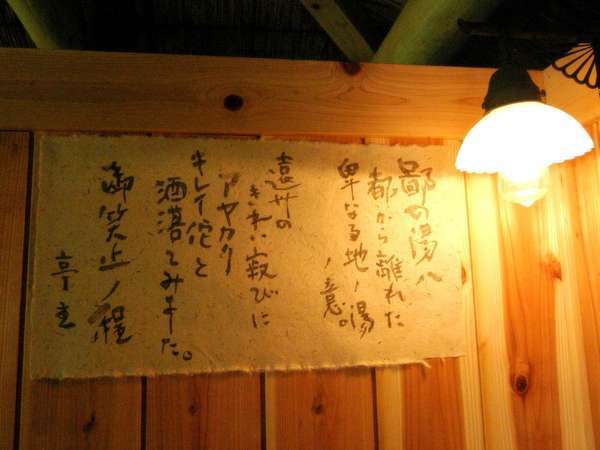 鄙の湯ハ
都から離れた
卑なる地ノ湯
ノ意。
遠州の
きれい寂びに
アヤカリ
キレイ侘と
洒落てみました。
御笑止ノ程
亭主